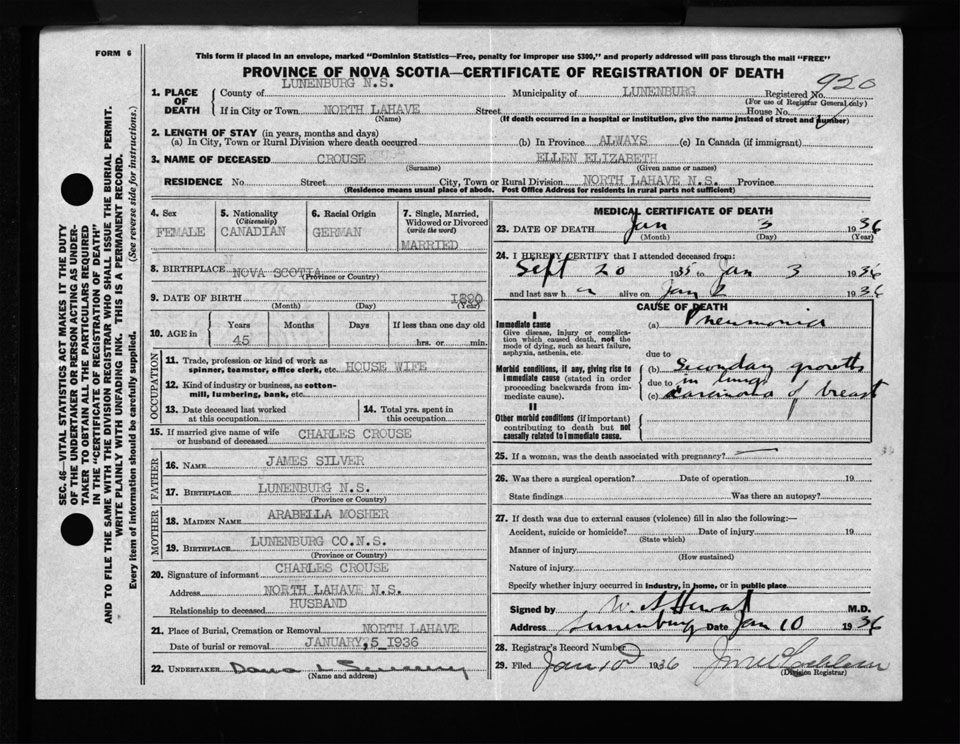 FORM 6
This form if placed in an envelope, marked "Dominion Statistics—Free, penalty for improper use $300," and properly addressed will pass through the mail "FREE"
PROVINCE OF NOVA SCOTIA—CERTIFICATE OF REGISTRATION OF DEATH
920
1. PLACE OF DEATH
County of LUNENBURG N.S. Municipality of LUNENBURG Registered No.
(For use of Registrar General only)
If in City or Town NORTH LAHAVE Street House No.
(Name) (If death occurred in a hospital or institution, give the name instead of street and number)
2. LENGTH OF STAY (in years, months and days)
(a) In City, Town or Rural Division where death occurred (b) In Province ALWAYS (c) In Canada (if immigrant)
3. NAME OF DECEASED CROUSE ELLEN ELIZABETH
(Surname) (Given name or names)
RESIDENCE No. Street City, Town or Rural Division NORTH LAHAVE N.S. Province
(Residence means usual place of abode. Post Office Address for residents in rural parts not sufficient)
4. Sex
FEMALE
5. Nationality
(Citizenship)
CANADIAN
6. Racial Origin
GERMAN
7. Single, Married, Widowed or Divorced
(write the word)
MARRIED
8. BIRTHPLACE NOVA SCOTIA
(Province or Country)
9. DATE OF BIRTH 1890
(Month) (Day) (Year)
10. AGE in
Years Months Days If less than one day old
45 hrs. or min.
OCCUPATION
11. Trade, profession or kind of work as spinner, teamster, office clerk, etc. HOUSE WIFE
12. Kind of industry or business, as cotton-mill, lumbering, bank, etc.
13. Date deceased last worked at this occupation
14. Total yrs. spent in this occupation
15. If married give name of wife or husband of deceased CHARLES CROUSE
FATHER
16. NAME JAMES SILVER
17. BIRTHPLACE LUNENBURG N.S.
(Province or Country)
MOTHER
18. MAIDEN NAME ARABELLA MOSHER
19. BIRTHPLACE LUNENBURG CO.N.S.
(Province or Country)
20. Signature of informant CHARLES CROUSE
Address NORTH LAHAVE N.S.
Relationship to deceased HUSBAND
21. Place of Burial, Cremation or Removal NORTH LAHAVE
Date of burial or removal JANUARY,5 1936
22. UNDERTAKER
(Name and address)
MEDICAL CERTIFICATE OF DEATH
23. DATE OF DEATH Jan 3 1936
(Month) (Day) (Year)
24. I HEREBY CERTIFY that I attended deceased from:
Sept 20 1935 to Jan 3 1936
and last saw h er alive on Jan 2 1936
CAUSE OF DEATH
I
Immediate cause
Give disease, injury or complication which caused death, not the mode of dying, such as heart failure, asphyxia, asthenia, etc.
(a) Pneumonia
due to
Morbid conditions, if any, giving rise to immediate cause (stated in order proceeding backwards from immediate cause).
(b) Secondary growth
due to in lungs
(c) carcinoma of breast
II
Other morbid conditions (if important) contributing to death but not causally related to immediate cause.
25. If a woman, was the death associated with pregnancy?
26. Was there a surgical operation? Date of operation 19
State findings Was there an autopsy?
27. If death was due to external causes (violence) fill in also the following:—
Accident, suicide or homicide? Date of injury 19
(State which)
Manner of injury
(How sustained)
Nature of injury
Specify whether injury occurred in industry, in home, or in public place
Signed by M.D.
Address Lunenburg Date Jan 10 1936
28. Registrar's Record Number
29. Filed Jan 10 1936
(Division Registrar)
SEC. 46—VITAL STATISTICS ACT MAKES IT THE DUTY
OF THE UNDERTAKER OR PERSON ACTING AS UNDER-
TAKER TO OBTAIN ALL THE PARTICULARS REQUIRED
IN THE "CERTIFICATE OF REGISTRATION OF DEATH"
AND TO FILE THE SAME WITH THE DIVISION REGISTRAR WHO SHALL ISSUE THE BURIAL PERMIT.
WRITE PLAINLY WITH UNFADING INK. THIS IS A PERMANENT RECORD.
Every item of information should be carefully supplied. (See reverse side for instructions.)